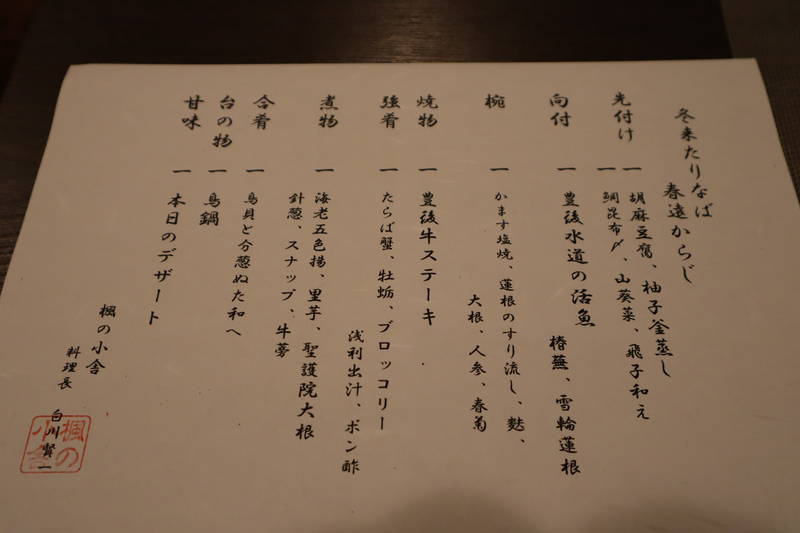 冬来たりなば
春遠からじ
先付け 一 胡麻豆腐、柚子釜蒸し
一 鯛昆布〆、山葵菜、飛子和え
向付 一 豊後水道の活魚
椿蕪、雪輪蓮根
椀 一 かます塩焼、蓮根のすり流し、麩、
大根、人参、春菊
焼物 一 豊後牛ステーキ
強肴 一 たらば蟹、牡蛎、ブロッコリー
浅利出汁、ポン酢
煮物 一 海老五色揚、里芋、聖護院大根
針葱、スナップ、牛蒡
合肴 一 鳥貝と分葱ぬた和へ
台の物 一 鳥鍋
甘味 一 本日のデザート
楓の小舎
料理長 白川賢一
楓の
小舎